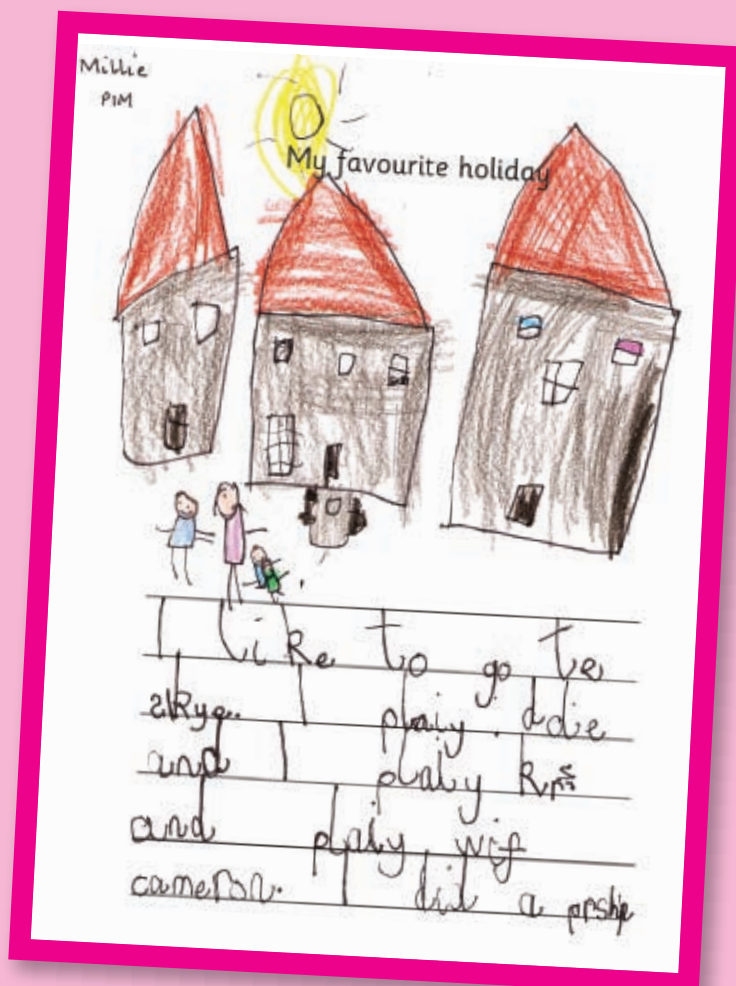 Millie
P1M
My favourite holiday
I like to go te
skye. I plaiy ddie
and I plaly
and plaly wif
cameron. I did a